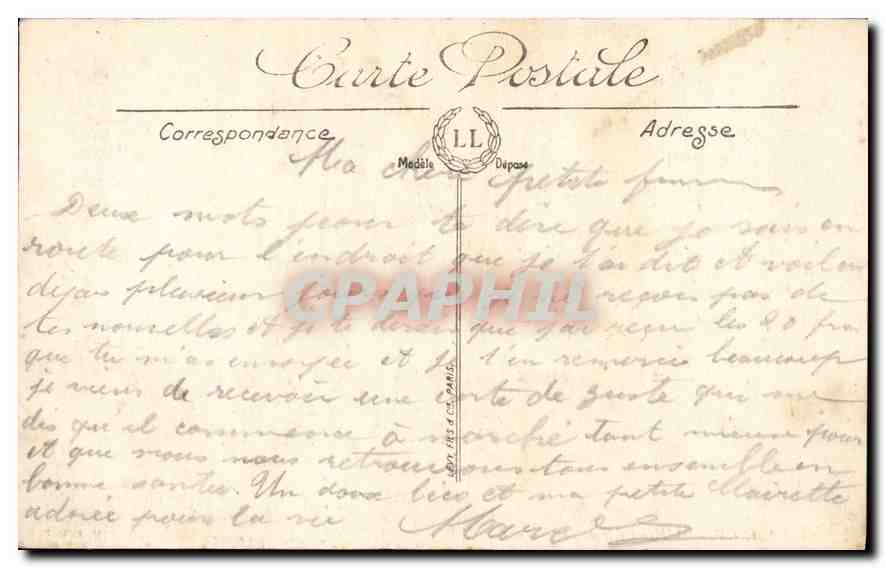 Carte Postale
Correspondance
Adresse
LL
Modèle Déposé
Ma petite
Deux mots pour te dire que je suis en
route pour l'endroit que je t'ai dit et voilà
déjas plusieur que je reçois pas de
tes nouvelles et je te dirai que j'ai reçu les 20 fra
que tu m'as envoyée et je t'en remercie beaucoup
je viens de recevoir une carte de qui me
dis qu'il commence à marché tant mieux pour
et que nous nous retrouvions tous ensemble en
bonne santer. Un doux et ma petite
adrée pour la vie Marcel
LEVY FILS & Cie, PARIS.
CPAPHIL